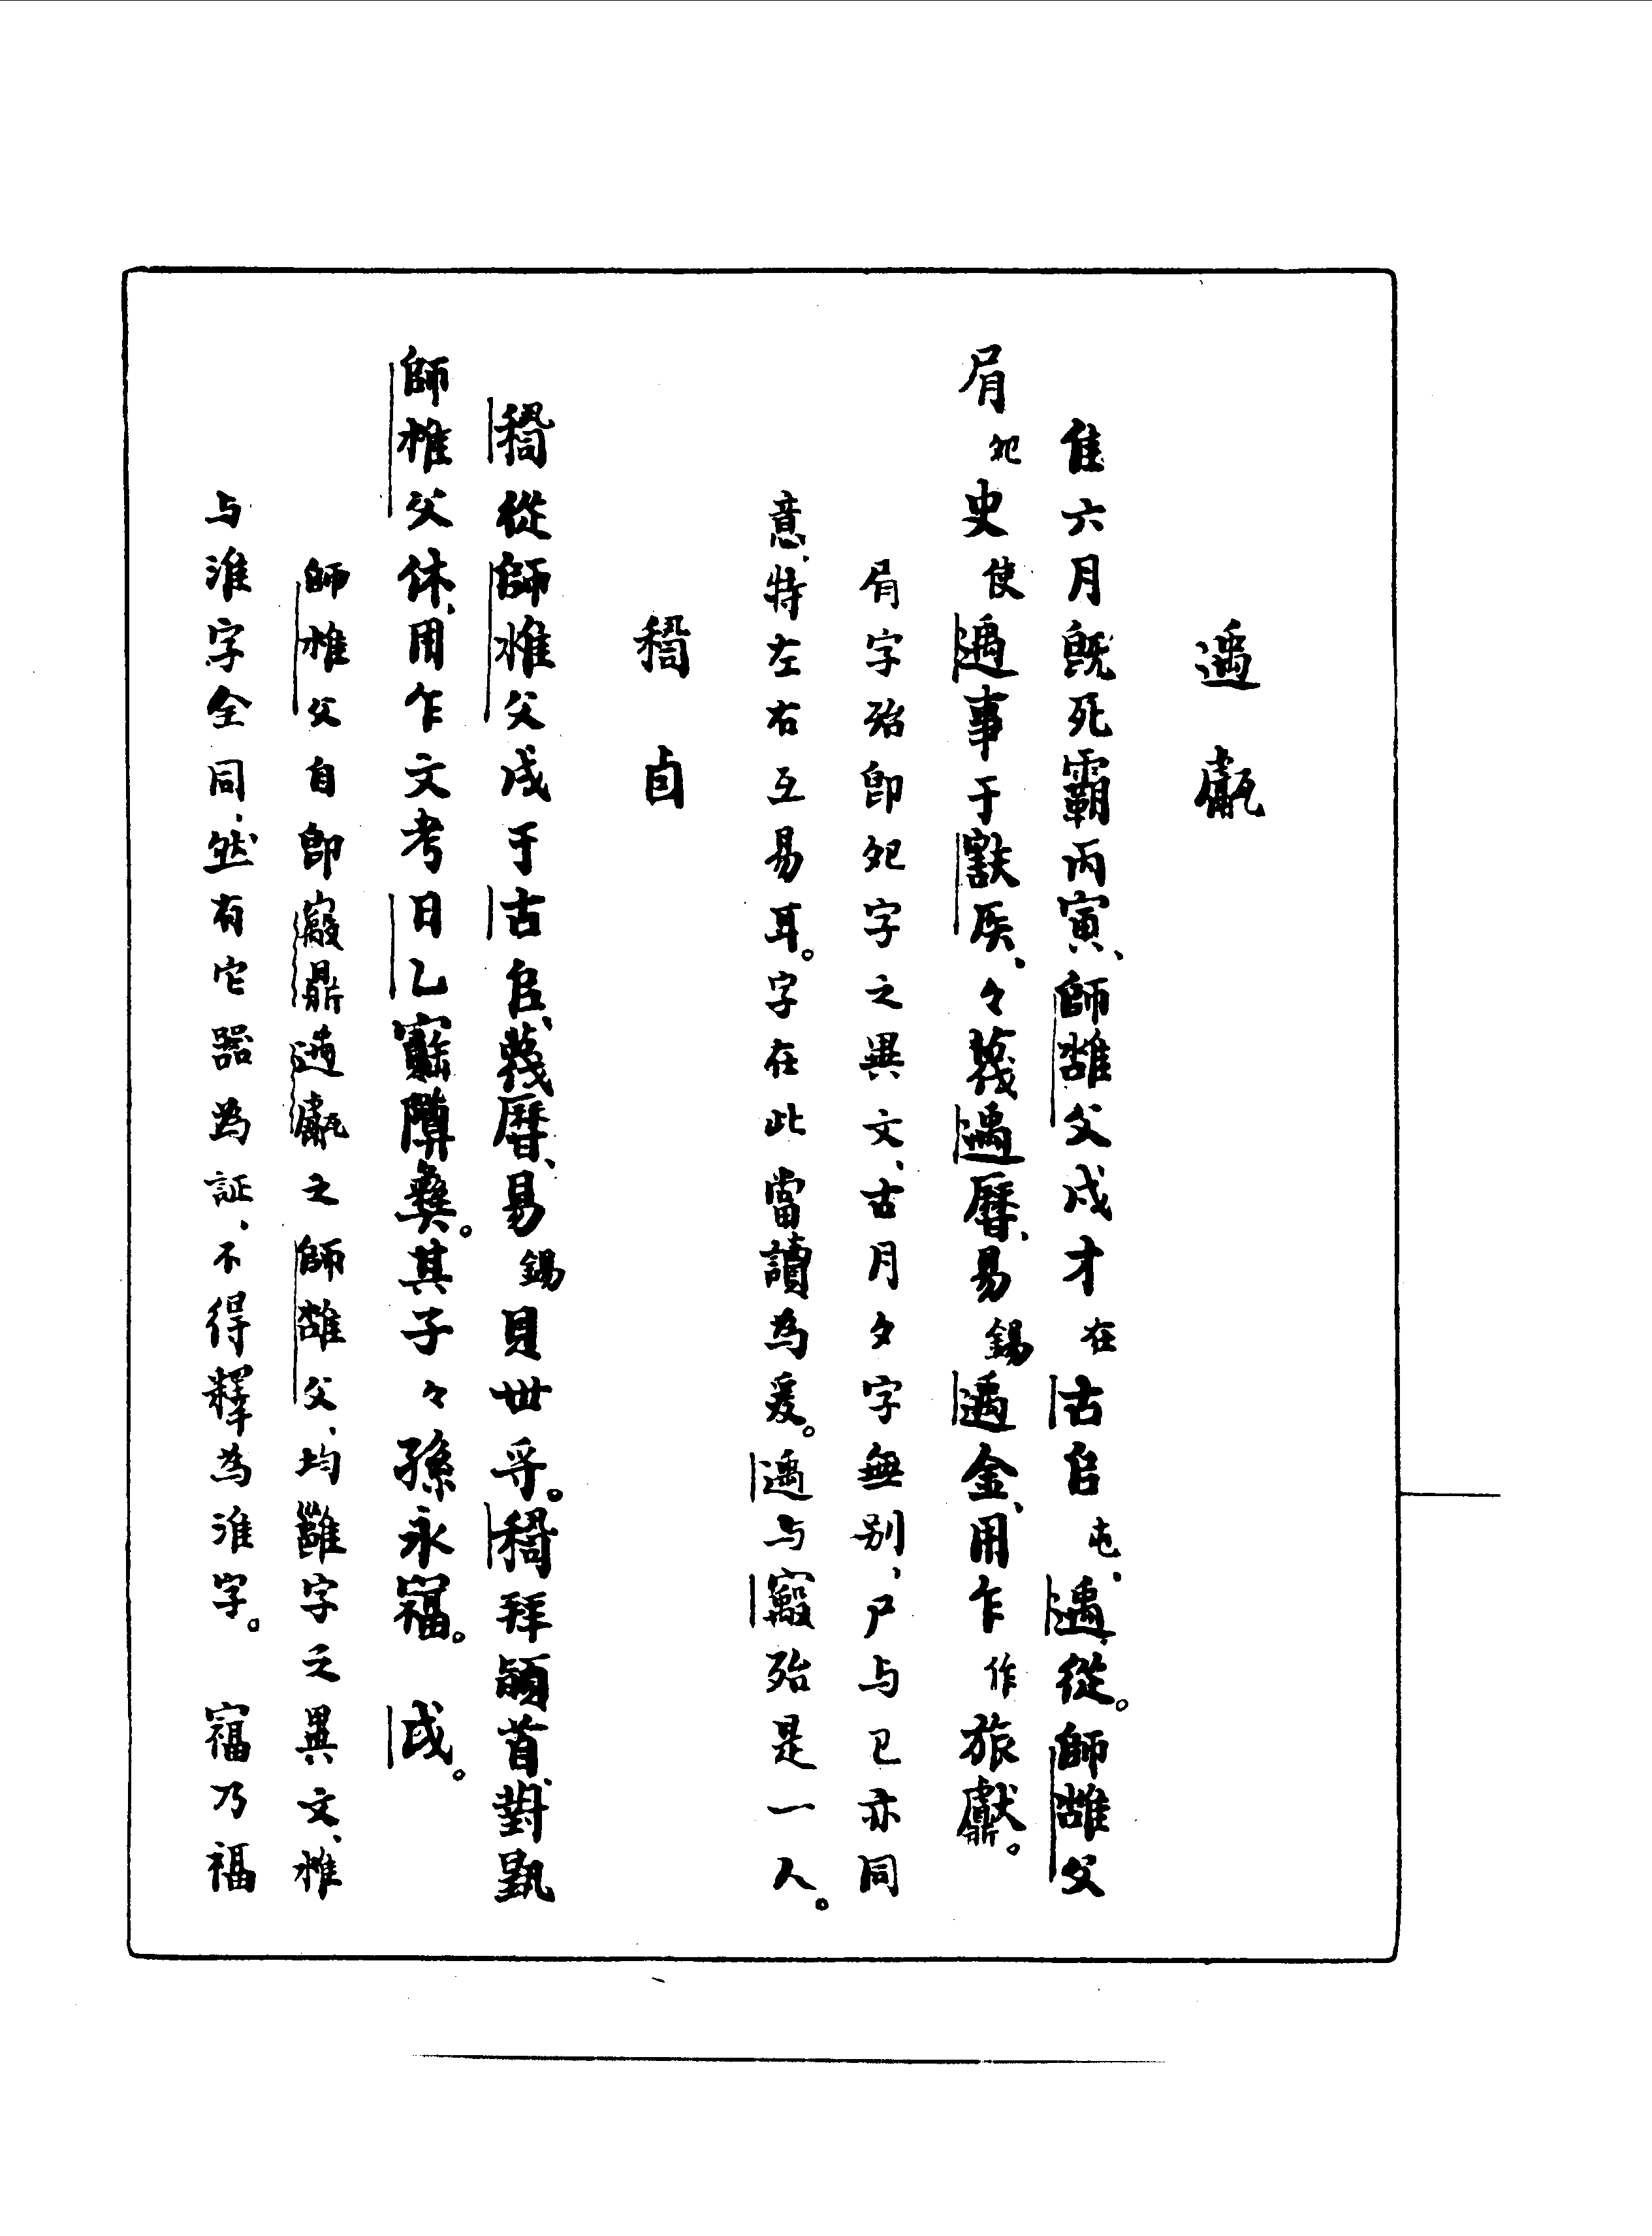 遇甗
隹六月既死霸丙寅、師雝父戍才在古𠂤屯、遇從。師雝父
㞕夗史使遇事于㝬侯、々蔑遇曆、易錫遇金、用乍作旅甗。
㞕字殆即夗字之異文、古月夕字無别、尸与㔾亦同
意、特左右互易耳。字在此當讀為爰。遇与㝨殆是一人。
稽卣
稽從師淮父戍于古𠂤、蔑曆、易錫貝卅寽。稽拜䭫首、對䫻
師淮父休、用乍文考日乙寶䵼彝。其子々孫永寚。戉。
師淮父自即㝨鼎遇甗之師雝父、均雝字之異文、淮
与淮字全同、然有它器為証、不得釋為淮字。寚乃福